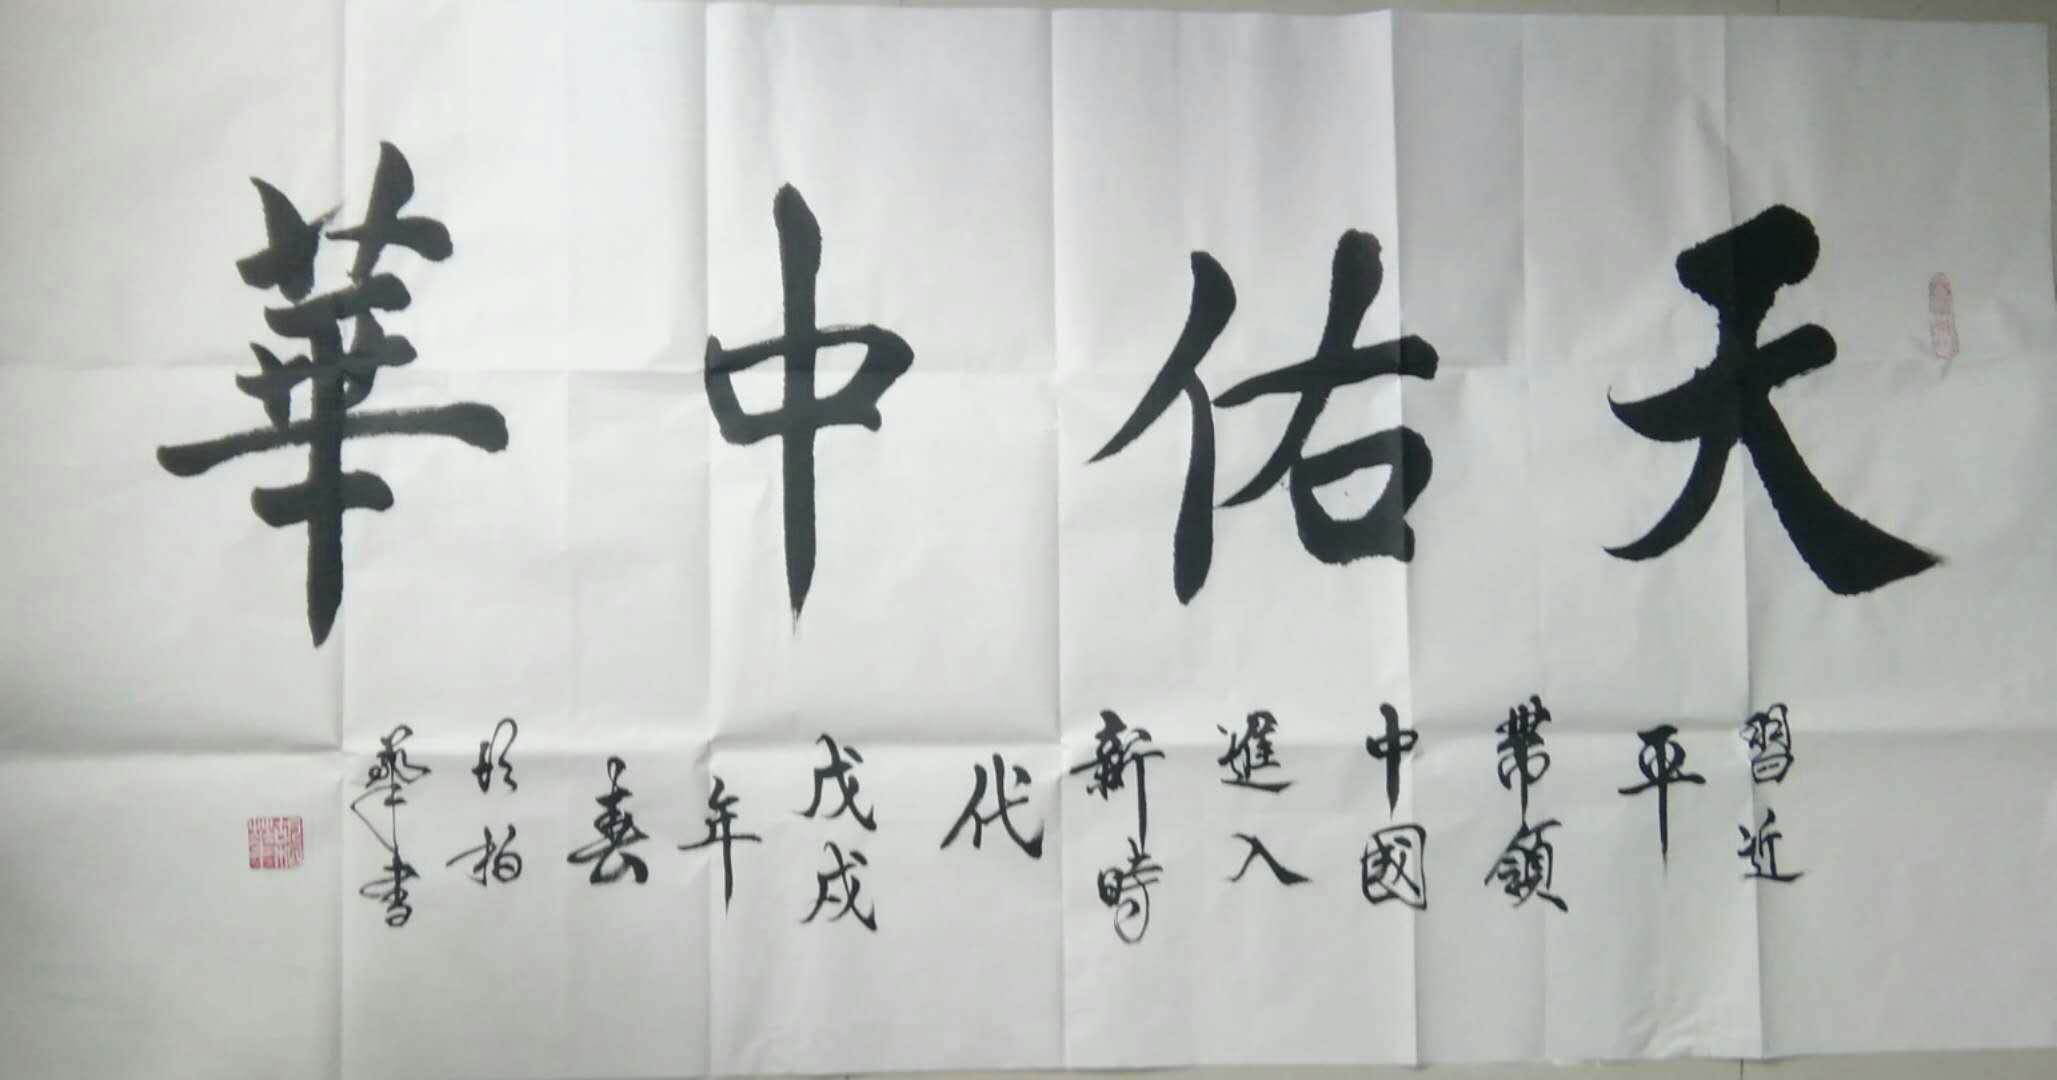 天佑中華
習近平帶領中國進入新時代
戊戌年春
柏華書